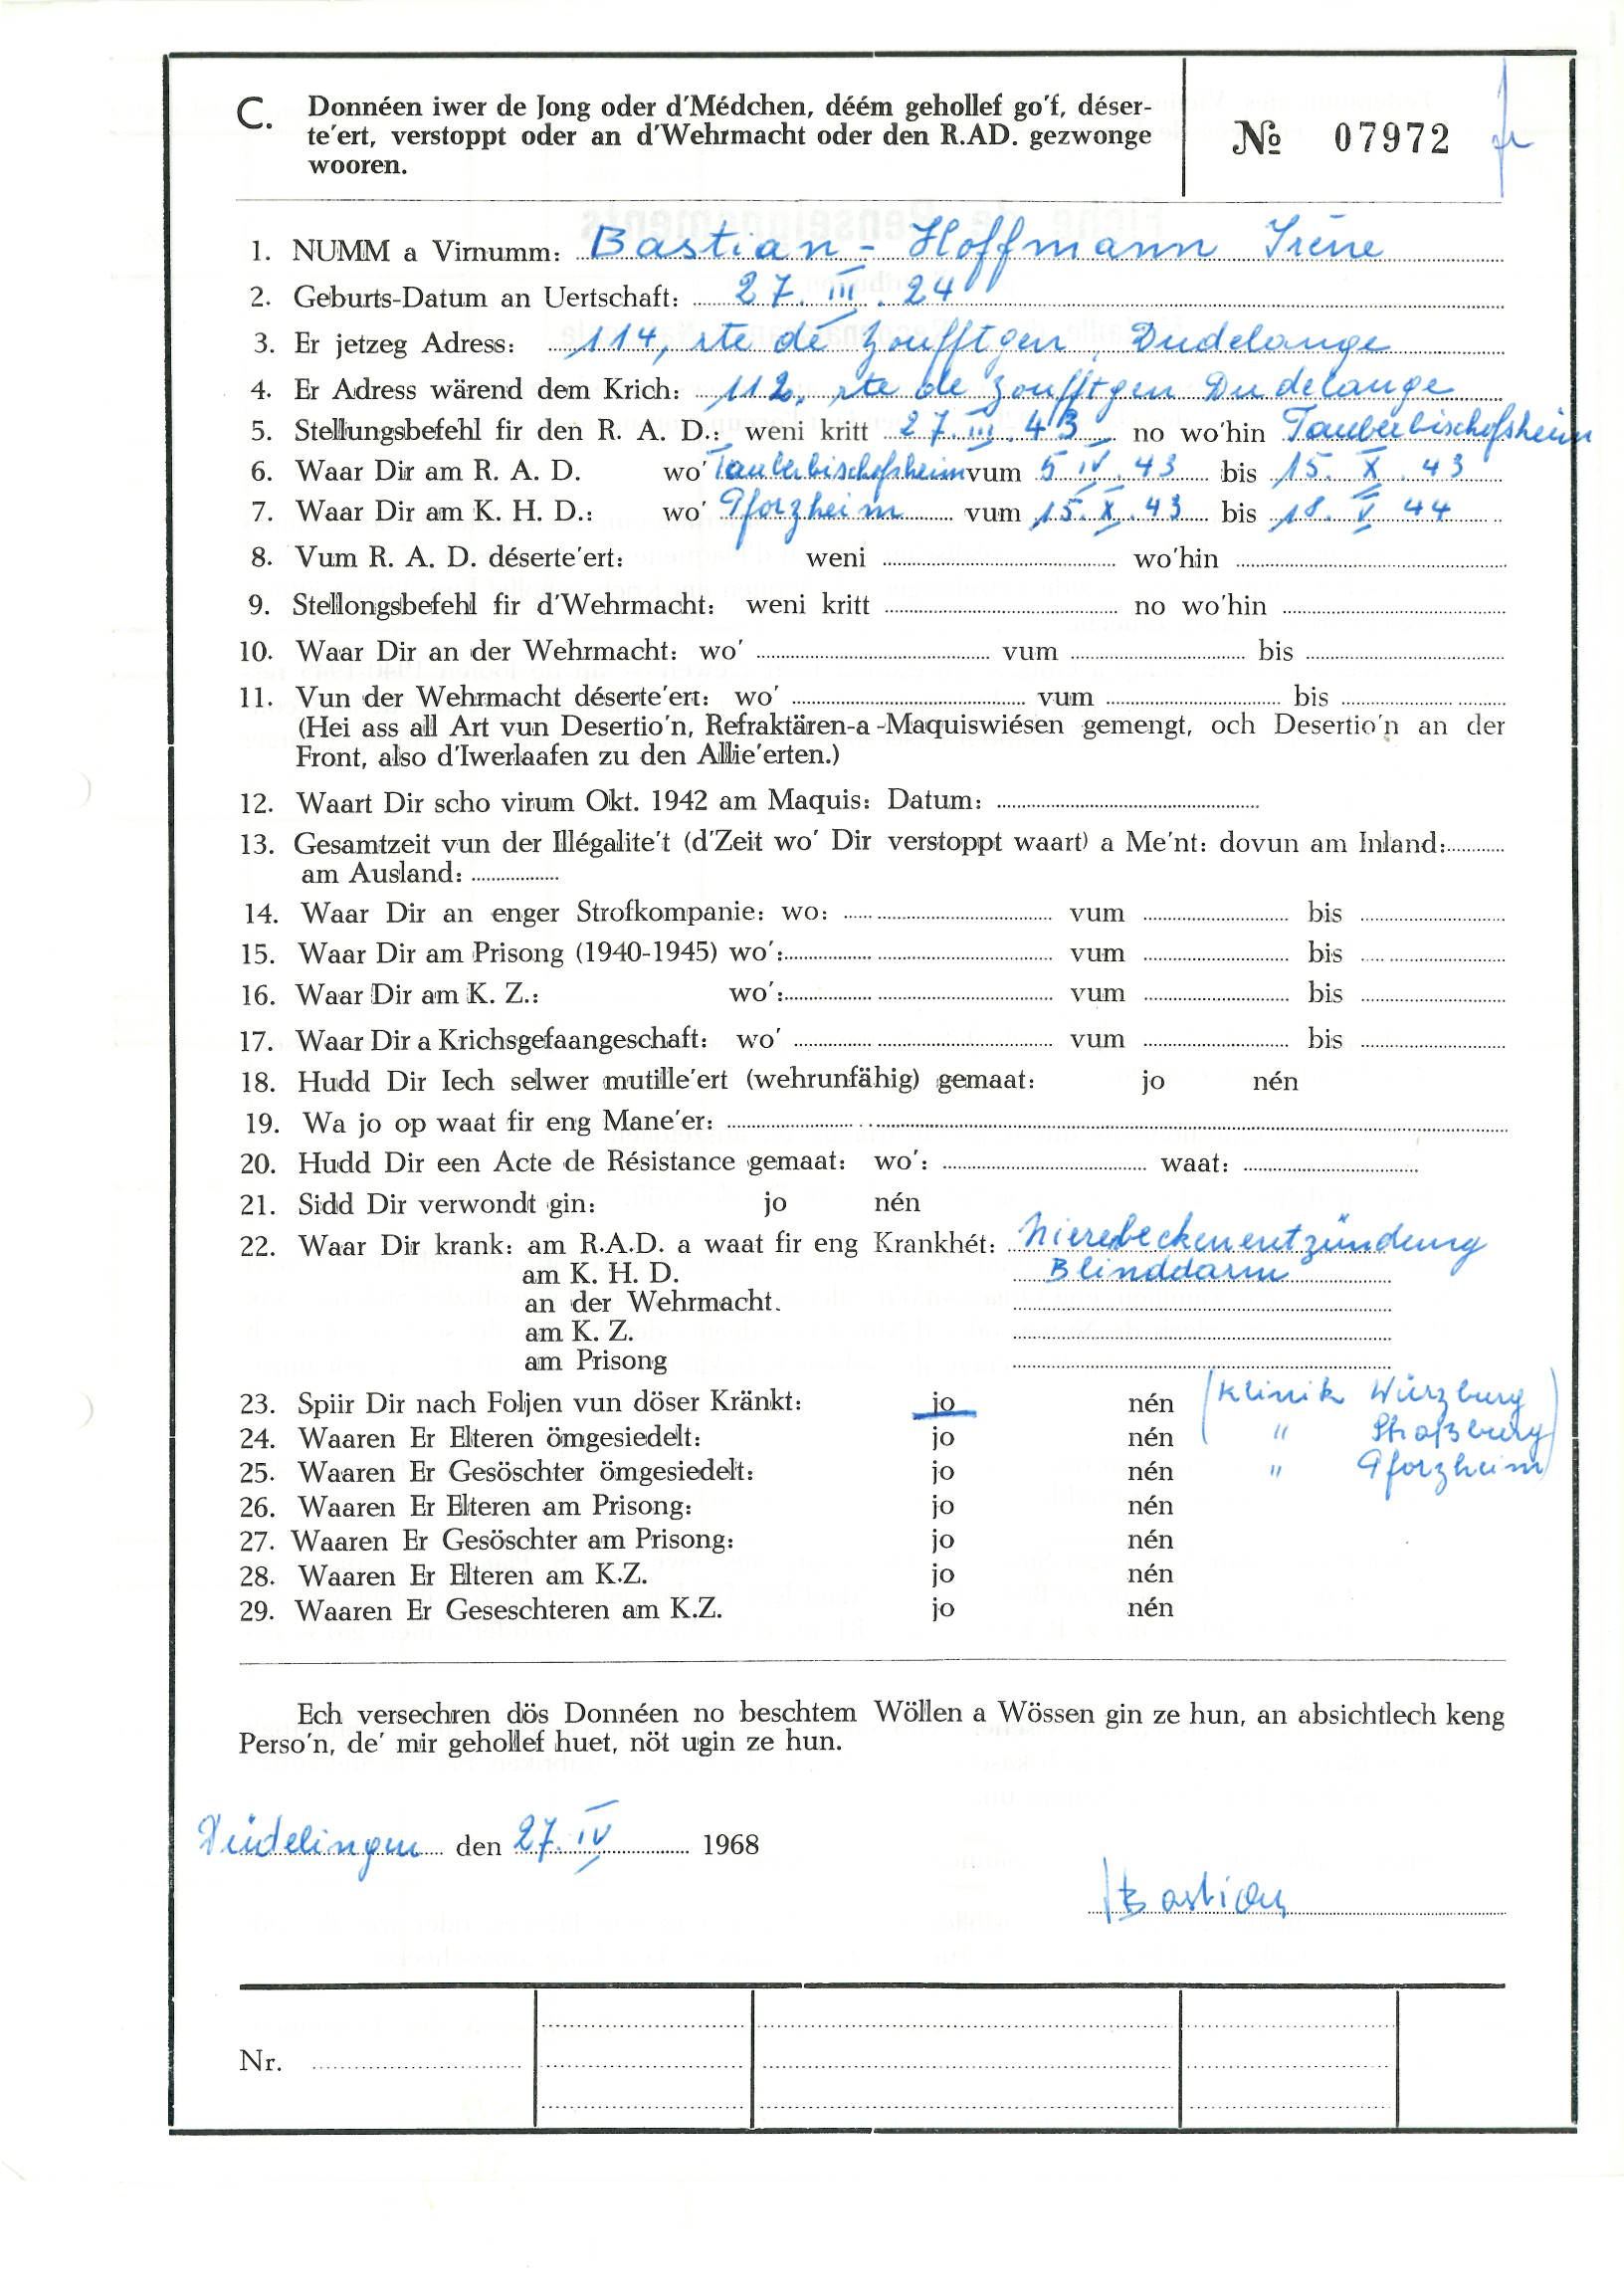 C. Donnéen iwer de Jong oder d'Médchen, déém gehollef go'f, déser-
te'ert, verstoppt oder an d'Wehrmacht oder den R.AD. gezwonge
wooren.
№ 07972
1. NUMM a Virnumm: Bastian - Hoffmann Irène
2. Geburts-Datum an Uertschaft: 27. III. 24
3. Er jetzeg Adress: 114, rte de Zoufftgen, Dudelange
4. Er Adress wärend dem Krich: 112, rte de Zoufftgen Dudelange
5. Stellungsbefehl fir den R. A. D.: weni kritt 27. III. 43 no wo'hin Tauberbischofsheim
6. Waar Dir am R. A. D. wo' Tauberbischofsheim vum 5 IV. 43 bis 15. X. 43
7. Waar Dir am K. H. D.: wo' Pforzheim vum 15. X. 43 bis 18. V 44
8. Vum R. A. D. déserte'ert: weni wo'hin
9. Stellongsbefehl fir d'Wehrmacht: weni kritt no wo'hin
10. Waar Dir an der Wehrmacht: wo' vum bis
11. Vun der Wehrmacht déserte'ert: wo' vum bis
(Hei ass all Art vun Desertio'n, Refraktären-a-Maquiswiésen gemengt, och Desertio'n an der
Front, also d'Iwerlaafen zu den Allie'erten.)
12. Waart Dir scho virum Okt. 1942 am Maquis: Datum:
13. Gesamtzeit vun der Illégalite't (d'Zeit wo' Dir verstoppt waart) a Me'nt: dovun am Inland:
am Ausland:
14. Waar Dir an enger Strofkompanie: wo: vum bis
15. Waar Dir am Prisong (1940-1945) wo': vum bis
16. Waar Dir am K. Z.: wo': vum bis
17. Waar Dir a Krichsgefaangeschaft: wo' vum bis
18. Hudd Dir Iech selwer mutille'ert (wehrunfähig) gemaat: jo nén
19. Wa jo op waat fir eng Mane'er:
20. Hudd Dir een Acte de Résistance gemaat: wo': waat:
21. Sidd Dir verwondt gin: jo nén
22. Waar Dir krank: am R.A.D. a waat fir eng Krankhét: Nierenbeckenentzündung
am K. H. D. Blinddarm
an der Wehrmacht.
am K. Z.
am Prisong
23. Spiir Dir nach Foljen vun döser Kränkt: jo nén (Klinik Würzburg
24. Waaren Er Elteren ömgesiedelt: jo nén " Straßburg
25. Waaren Er Gesöschter ömgesiedelt: jo nén " Pforzheim)
26. Waaren Er Elteren am Prisong: jo nén
27. Waaren Er Gesöschter am Prisong: jo nén
28. Waaren Er Elteren am K.Z. jo nén
29. Waaren Er Geseschteren am K.Z. jo nén
Ech versechren dös Donnéen no beschtem Wöllen a Wössen gin ze hun, an absichtlech keng
Perso'n, de' mir gehollef huet, nöt ugin ze hun.
Düdelingen den 27. IV 1968
Bastian
Nr.